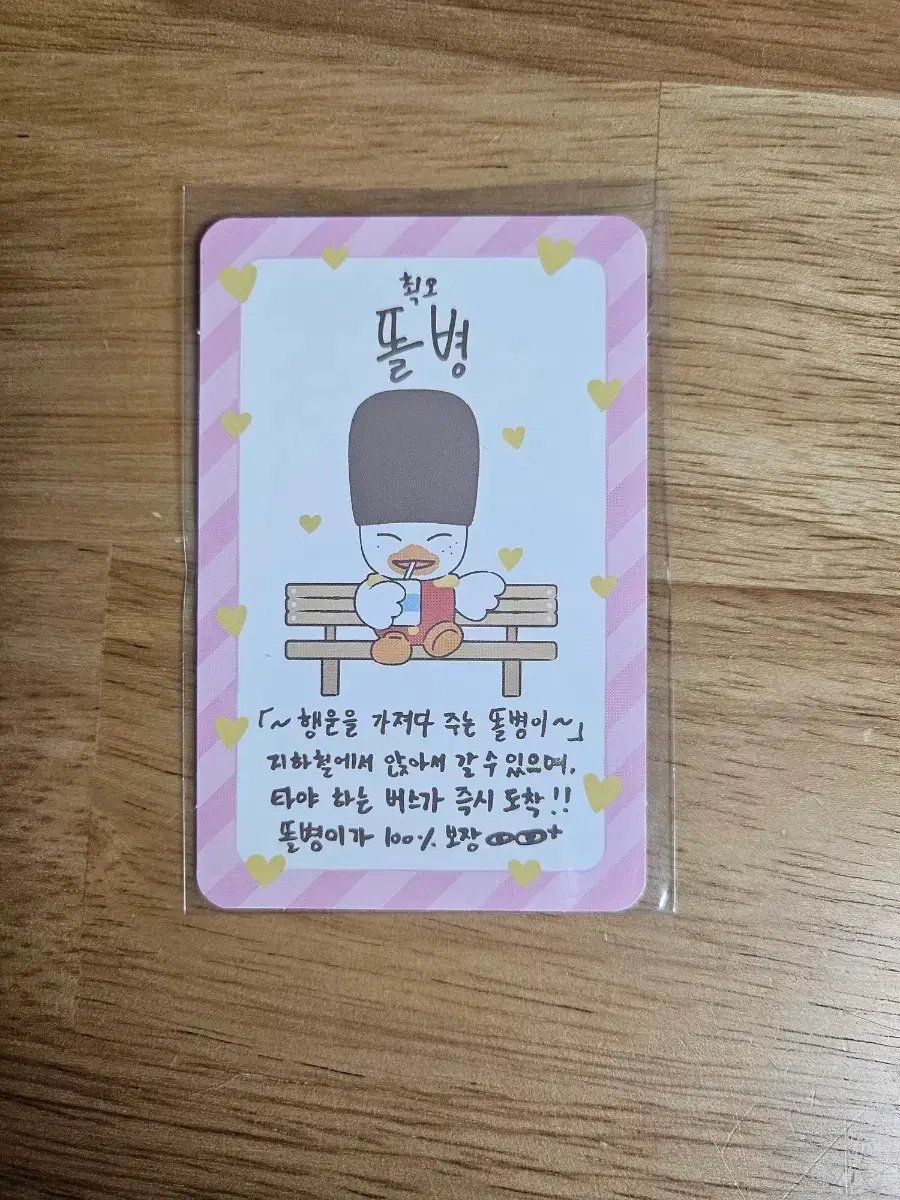 최오
똘병
「~행운을 가져다 주는 똘병이~」
지하철에서 앉아서 갈 수 있으며,
타야 하는 버스가 즉시 도착!!
똘병이가 100% 보장